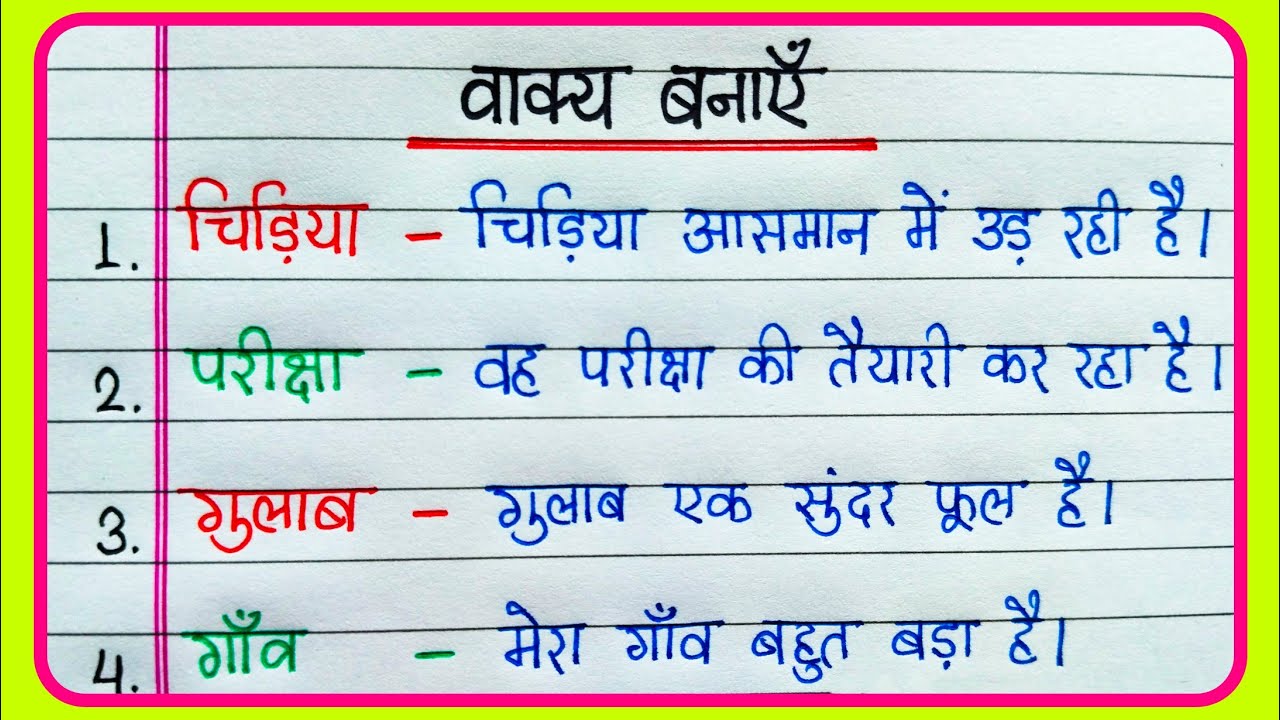 वाक्य बनाएँ
1. चिड़िया - चिड़िया आसमान में उड़ रही है।
2. परीक्षा - वह परीक्षा की तैयारी कर रहा है।
3. गुलाब - गुलाब एक सुंदर फूल है।
4. गाँव - मेरा गाँव बहुत बड़ा है।